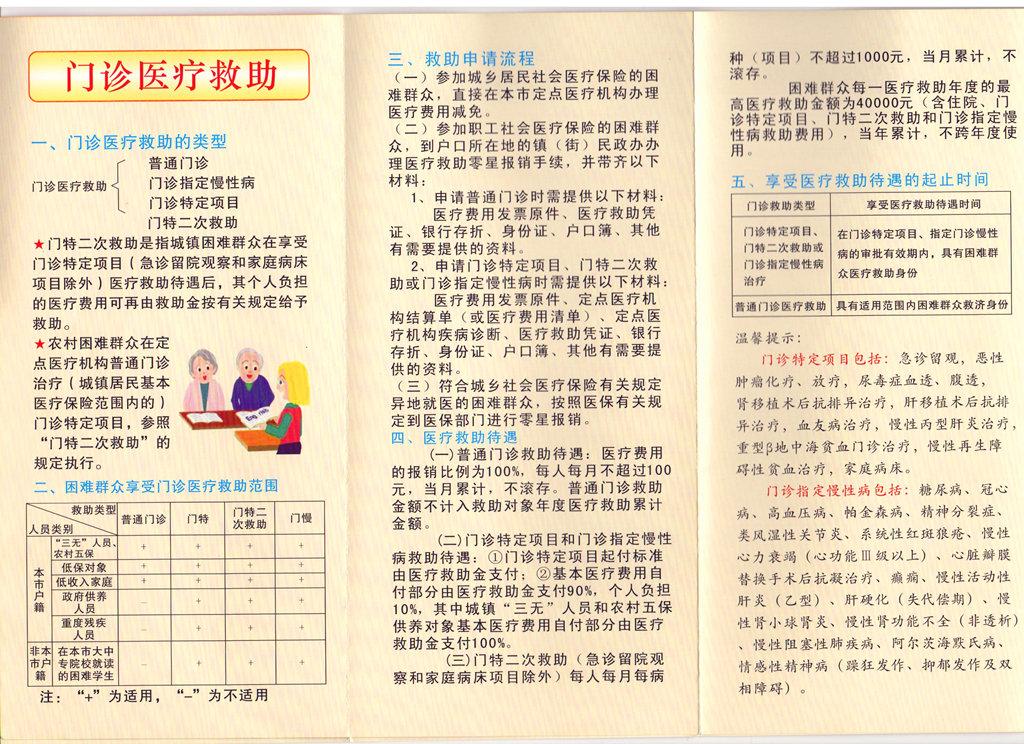 门诊医疗救助
一、门诊医疗救助的类型
门诊医疗救助
普通门诊
门诊指定慢性病
门诊特定项目
门特二次救助
★门特二次救助是指城镇困难群众在享受
门诊特定项目（急诊留院观察和家庭病床
项目除外）医疗救助待遇后，其个人负担
的医疗费用可再由救助金按有关规定给予
救助。
★农村困难群众在定
点医疗机构普通门诊
治疗（城镇居民基本
医疗保险范围内的）
门诊特定项目，参照
“门特二次救助”的
规定执行。
二、困难群众享受门诊医疗救助范围
救助类型
人员类别
普通门诊 门特 门特二次救助 门慢
本市户籍
“三无”人员、农村五保 + + + +
低保对象 + + + +
低收入家庭 + + + +
政府供养人员 － + + +
重度残疾人员 － + + +
非本市户籍
在本市大中专院校就读的困难学生 － + + +
注：“+”为适用，“－”为不适用
三、救助申请流程
（一）参加城乡居民社会医疗保险的困
难群众，直接在本市定点医疗机构办理
医疗费用减免。
（二）参加职工社会医疗保险的困难群
众，到户口所在地的镇（街）民政办办
理医疗救助零星报销手续，并带齐以下
材料：
1、申请普通门诊时需提供以下材料：
医疗费用发票原件、医疗救助凭
证、银行存折、身份证、户口簿、其他
有需要提供的资料。
2、申请门诊特定项目、门特二次救
助或门诊指定慢性病时需提供以下材料：
医疗费用发票原件、定点医疗机
构结算单（或医疗费用清单）、定点医
疗机构疾病诊断、医疗救助凭证、银行
存折、身份证、户口簿、其他有需要提
供的资料。
（三）符合城乡社会医疗保险有关规定
异地就医的困难群众，按照医保有关规
定到医保部门进行零星报销。
四、医疗救助待遇
(一)普通门诊救助待遇：医疗费用
的报销比例为100%，每人每月不超过100
元，当月累计，不滚存。普通门诊救助
金额不计入救助对象年度医疗救助累计
金额。
(二)门诊特定项目和门诊指定慢性
病救助待遇：①门诊特定项目起付标准
由医疗救助金支付；②基本医疗费用自
付部分由医疗救助金支付90%，个人负担
10%，其中城镇“三无”人员和农村五保
供养对象基本医疗费用自付部分由医疗
救助金支付100%。
(三)门特二次救助（急诊留院观
察和家庭病床项目除外）每人每月每病
种（项目）不超过1000元，当月累计，不
滚存。
困难群众每一医疗救助年度的最
高医疗救助金额为40000元（含住院、门
诊特定项目、门特二次救助和门诊指定慢
性病救助费用），当年累计，不跨年度使
用。
五、享受医疗救助待遇的起止时间
门诊救助类型 享受医疗救助待遇时间
门诊特定项目、门特二次救助或门诊指定慢性病治疗 在门诊特定项目、指定门诊慢性病的审批有效期内，具有困难群众医疗救助身份
普通门诊医疗救助 具有适用范围内困难群众救济身份
温馨提示：
门诊特定项目包括：急诊留观，恶性
肿瘤化疗、放疗，尿毒症血透、腹透，
肾移植术后抗排异治疗，肝移植术后抗排
异治疗，血友病治疗，慢性丙型肝炎治疗，
重型β地中海贫血门诊治疗，慢性再生障
碍性贫血治疗，家庭病床。
门诊指定慢性病包括：糖尿病、冠心
病、高血压病、帕金森病、精神分裂症、
类风湿性关节炎、系统性红斑狼疮、慢性
心力衰竭（心功能Ⅲ级以上）、心脏瓣膜
替换手术后抗凝治疗、癫痫、慢性活动性
肝炎（乙型）、肝硬化（失代偿期）、慢
性肾小球肾炎、慢性肾功能不全（非透析）
、慢性阻塞性肺疾病、阿尔茨海默氏病、
情感性精神病（躁狂发作、抑郁发作及双
相障碍）。